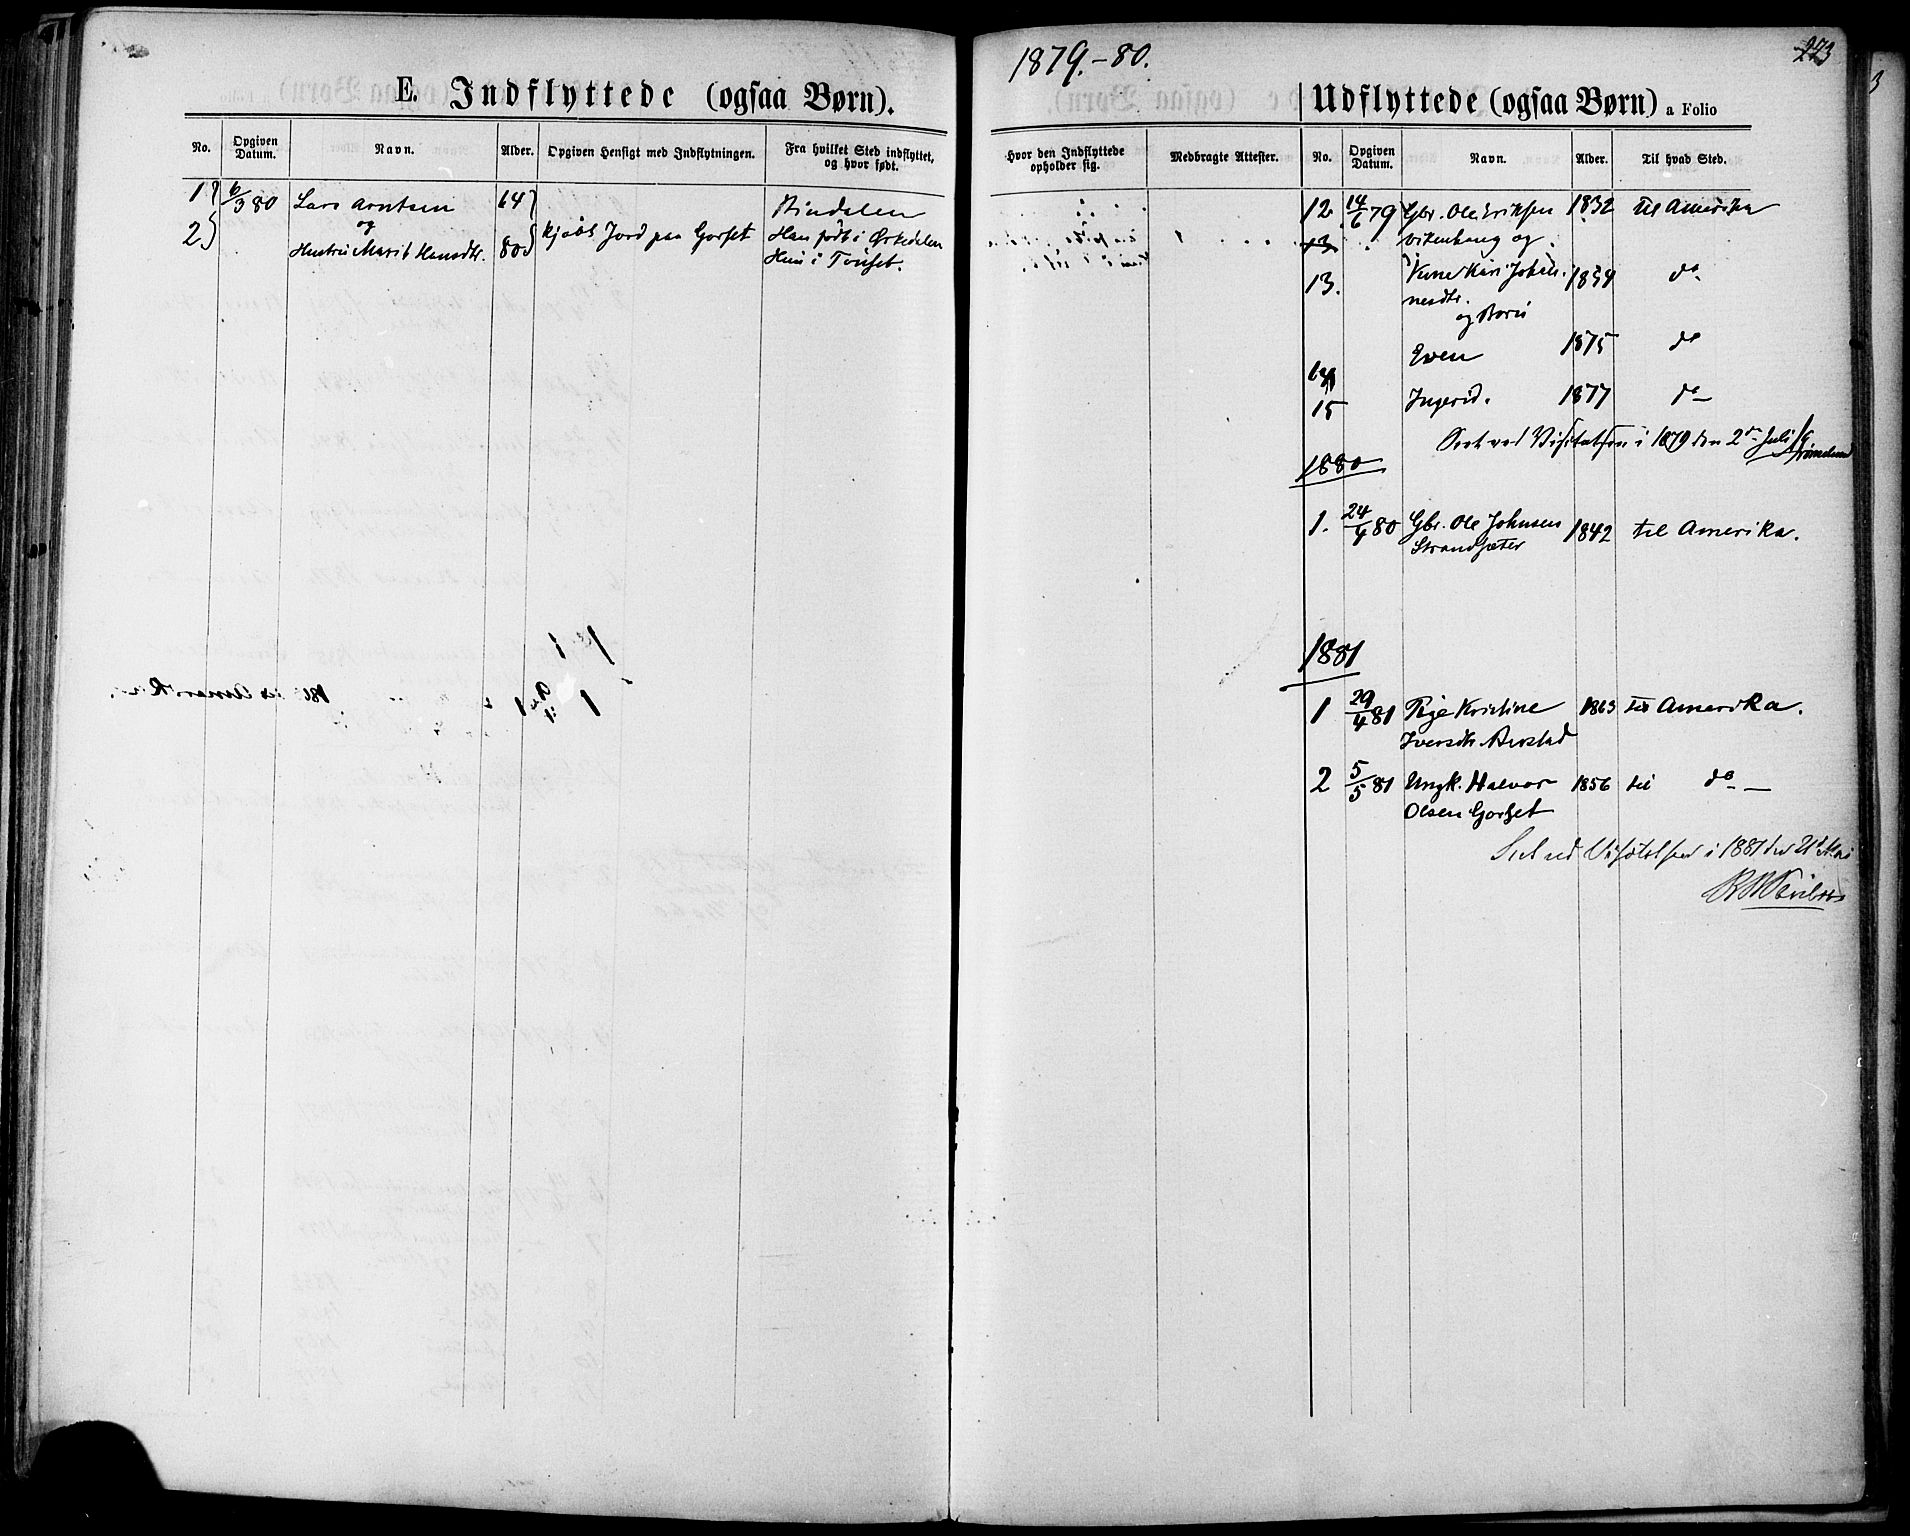 E. Indflyttede (ogsaa Børn).
No.
Opgiven Datum.
Navn.
Alder.
Opgiven Hensigt med Indflytningen.
Fra hvilket Sted indflyttet, og hvor født.
1 6/3 80 Lars Arntsen 64 Rindalen
og kjøbt Jord paa Gorset Han født i Ørkedalen
2 Hustru Marit Hansdtr. 80 Hun i Tønset.
1879.-80.
223
Udflyttede (ogsaa Børn) a Folio
Hvor den Indflyttede opholder sig.
Medbragte Attester.
No.
Opgiven Datum.
Navn.
Alder.
Til hvad Sted.
12 14/6 79 Gbr. Ole Eriksen 1832 til Amerika
13 og
13. Kone Kari Johan- 1839 do
nesdtr.
og Børn
14 Even 1875 do
15 Ingerid. 1877 do
Seet ved Visitatsen i 1879 den 2den Juli
1880
1. 24/4 80 Gbr. Ole Johnsen 1842 til Amerika.
Strandsæter
1881
1 29/4 81 Pige Kristine 1863 til Amerika.
Iversdtr.
2 5/5 81 Ungk. Halvor 1856 til do
Olsen Gorset
Seet ved Visitatsen i 1881 den 21 Mai